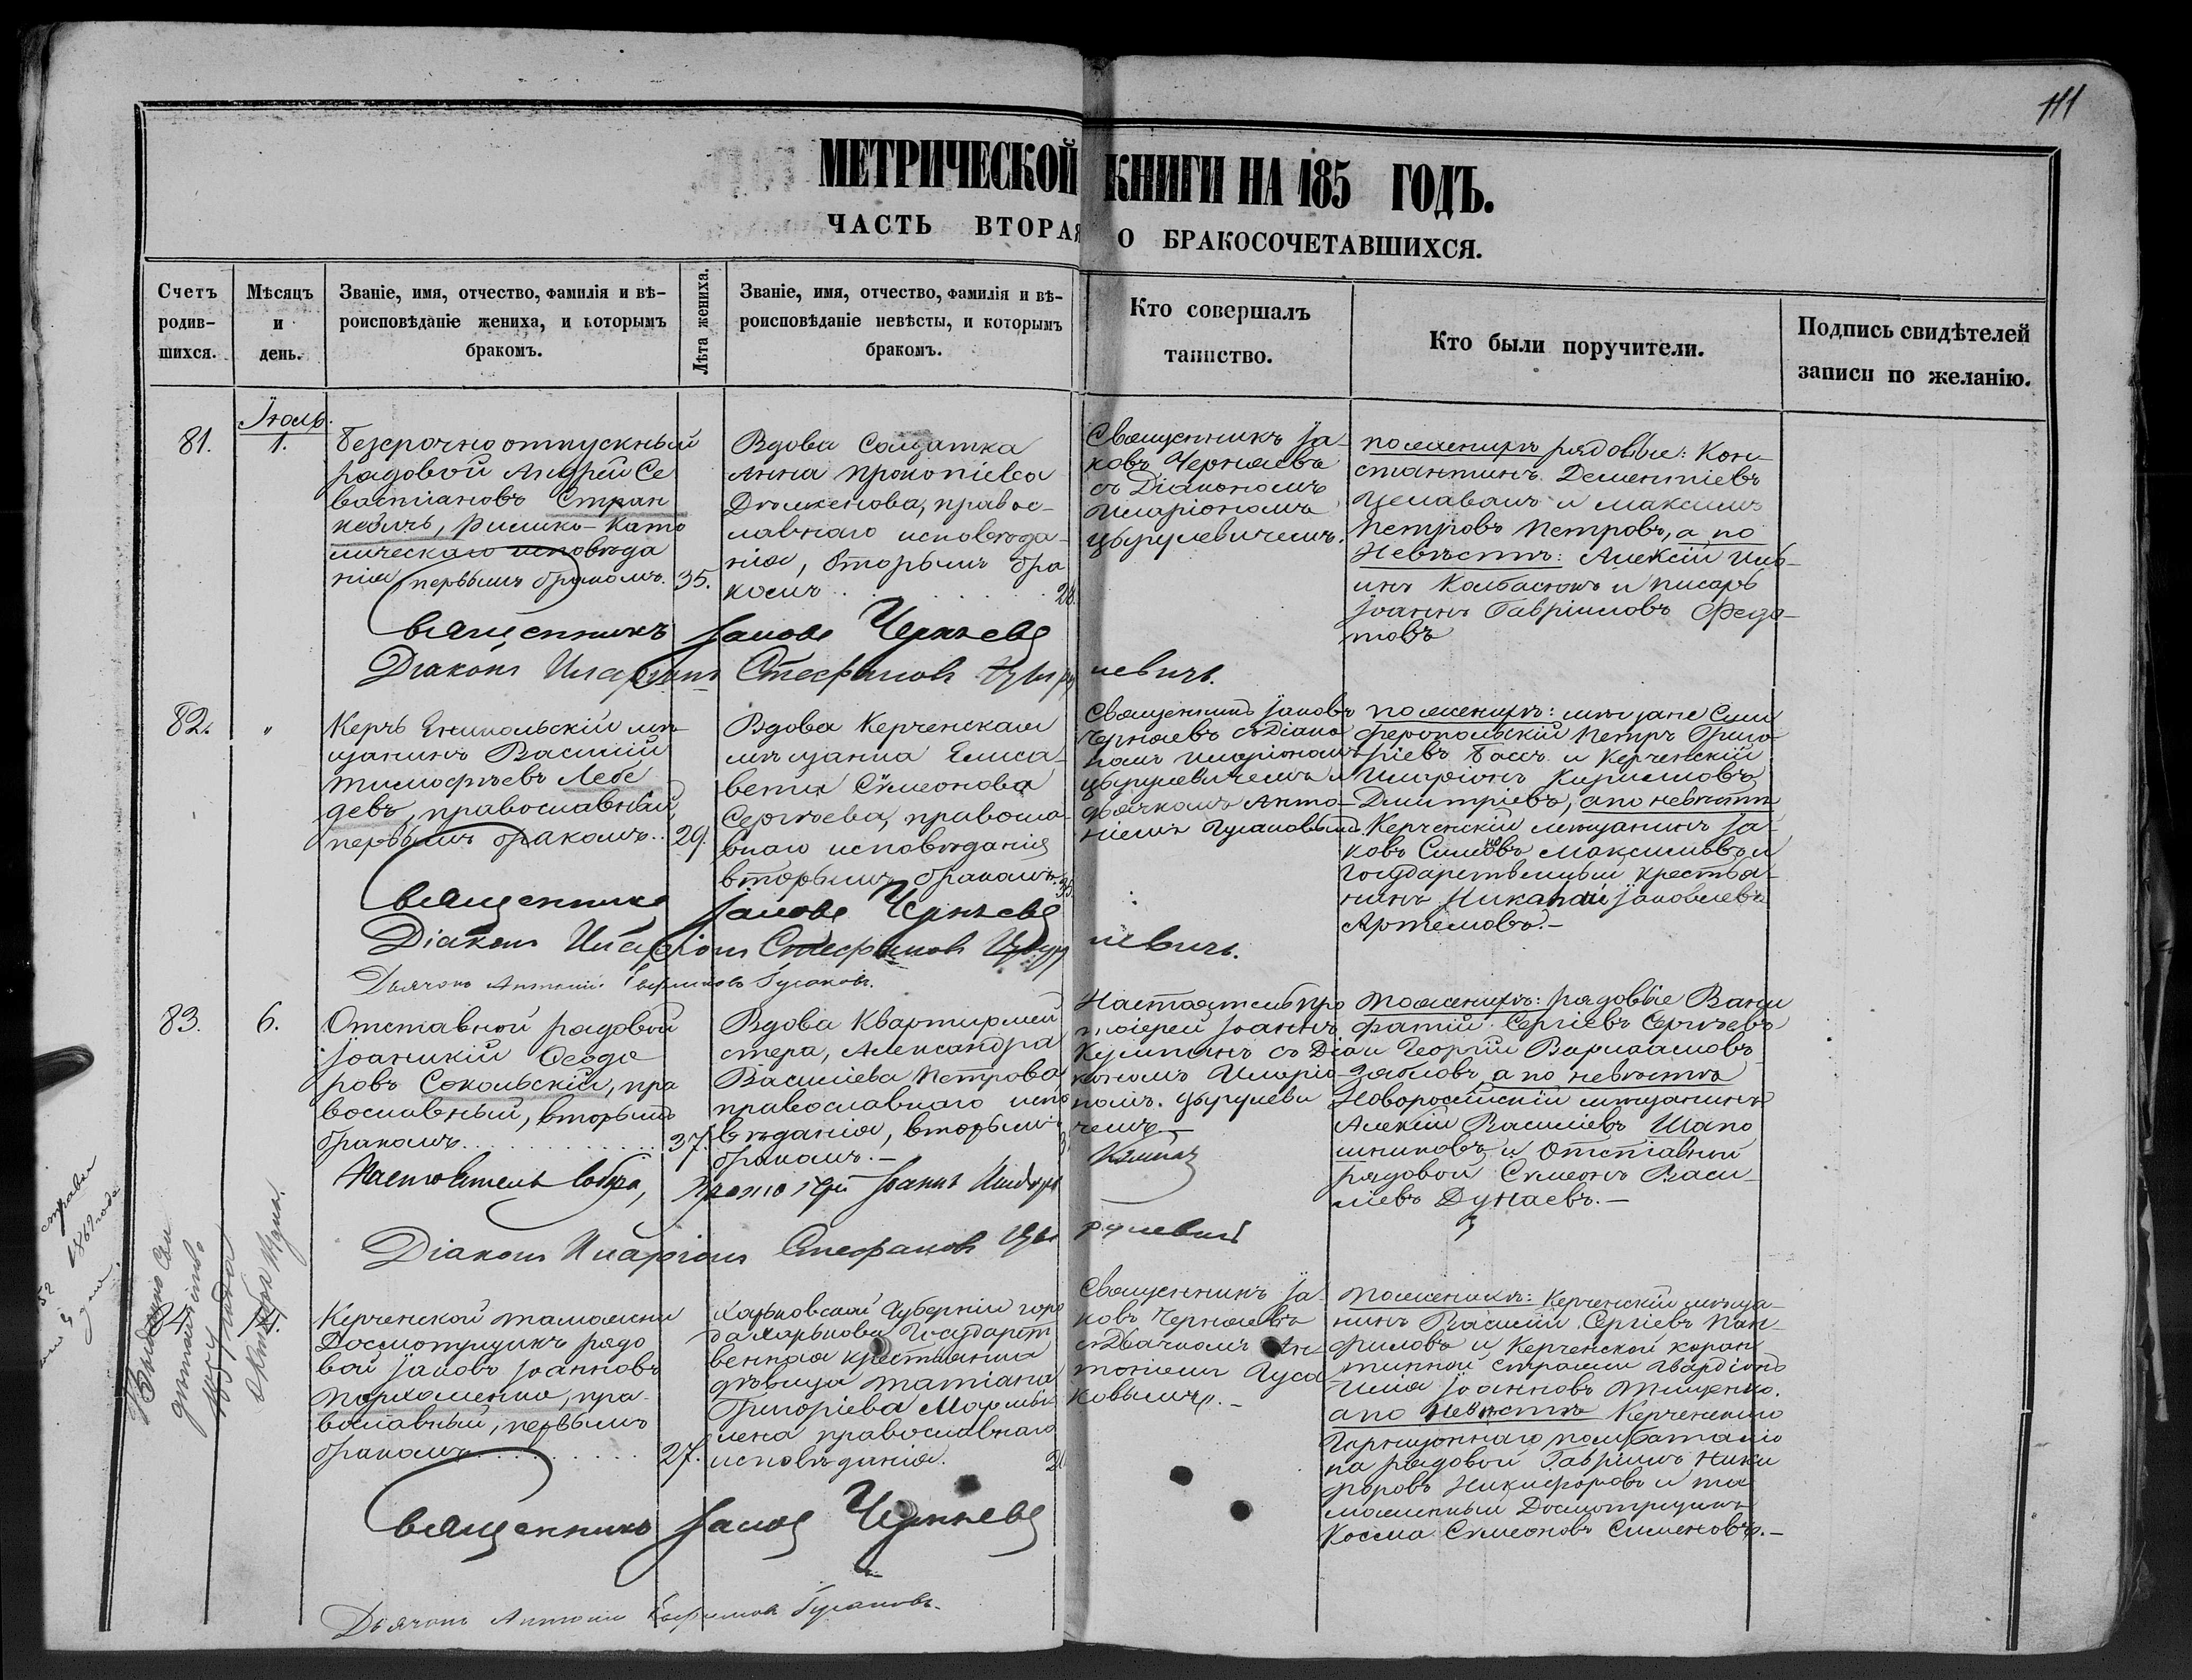 111
МЕТРИЧЕСКОЙ КНИГИ НА 185 ГОДЪ.
ЧАСТЬ ВТОРАЯ О БРАКОСОЧЕТАВШИХСЯ.
Счетъ родив-шихся.
Мѣсяцъ и день.
Званіе, имя, отчество, фамилія и вѣ-
роисповѣданіе жениха, и которымъ
бракомъ.
Лѣта жениха.
Званіе, имя, отчество, фамилія и вѣ-
роисповѣданіе невѣсты, и которымъ
бракомъ.
Кто совершалъ
таинство.
Кто были поручители.
Подпись свидѣтелей
записи по желанію.
81.
Іюль.
1.
Безсрочноотпускный
рядовой Андрей Се
вастіановъ Стран
кевичъ, Римско-Като
лическаго исповѣда
нія первымъ бракомъ. 35.
Вдова Солдатка
Анна Прокопіева
правос-
лавнаго исповѣда-
нія, вторымъ бра
комъ
Священникъ Іа-
ковъ Черняевъ
съ Діакономъ
Иларіономъ
Цырулевичемъ.
по женихѣ рядовые: Кон-
стантинъ Дементіевъ
и Максимъ
Петровъ Петровъ, а по
Невѣстѣ: Алексій Иль-
инъ и писарь
Іоаннъ Гавріиловъ Федо-
товъ
Священникъ Іаковъ Черняевъ
Діаконъ Иларіонъ Стефановъ Цырулевичъ.
82.
"
Керчь Еникольскій мѣ-
щанинъ Василій
Тимофѣевъ Лебе
девъ, православный,
первымъ бракомъ.. 29.
Вдова Керченская
мѣщанка Елиса-
вета Сѵмеонова
Сергѣева, правосла-
внаго исповѣданія
вторымъ бракомъ. 35
Священникъ Іаковъ
Черняевъ съ Діако
номъ Иларіономъ
Цырулевичемъ и
дьячкомъ Анто-
ніемъ Гусаковымъ.
по женихѣ: мѣщане Сим
феропольскій Петръ Григо-
ріевъ Басъ и Керченскій
Иларіонъ Кирилловъ
Дмитріевъ, а по невѣстѣ
Керченскій мѣщанинъ Іа-
ковъ Симоновъ Максимовъ и
Государственный крестья-
нинъ Іаковлевъ
Артемовъ.-
Священникъ Іаковъ Черняевъ
Діаконъ Иларіонъ Стефановъ Цырулевичъ.
Дьячокъ Антоній Гусаковъ.
83.
6.
Отставной рядовой
Іоаникій Ѳеодо
ровъ Сокольскій, пра
вославный, вторымъ
бракомъ. 37.
Вдова Квартирмей
стера, Александра
Василіева Петрова
православнаго испо
вѣданія, вторымъ
бракомъ.-
Настоятель Про
тоіерей Іоаннъ
съ Діа
кономъ Иларіо
номъ Цырулеви
чемъ.
По женихѣ: рядовые Вани
фатій Сергіевъ Сергѣевъ
и Георгій Варлаамовъ
а по невѣстѣ
Новороссійскій мѣщанинъ
Алексій Василіевъ Шапо
шниковъ и Отставной
рядовой Сѵмеонъ Васи-
ліевъ Дунаевъ.-
Настоятель Собора, Протоіерей Іоаннъ
Діаконъ Иларіонъ Стефановъ Цырулевичъ
84.
14.
Керченской таможни
Досмотрщикъ рядо
вой Іаковъ Іоанновъ
Пархоменко, пра-
вославный, первымъ
бракомъ. 27.
Харьковской Губерніи горо
да Харькова Государст
венная крестьянка
дѣвица Татіана
Григоріева
православнаго
исповѣданія.
Священникъ Іа-
ковъ Черняевъ
съ Дьячкомъ Ан
тоніемъ Гуса
ковымъ.-
По женихѣ: Керченскій мѣща-
нинъ Василій Сергіевъ Пан-
филовъ и Керченской каран
тинной стражи Гвардіонъ
Илія Іоанновъ Тищенко.
а по невѣстѣ Керченскаго
Гарнизоннаго полубаталіо
на рядовой Гавріилъ Ники
форовъ Никифоровъ и та
моженный Досмотрщикъ
Косма Сѵмеоновъ Симоновъ.-
Священникъ Іаковъ Черняевъ
Дьячокъ Антоній Гусаковъ.
Выдано
1869 года